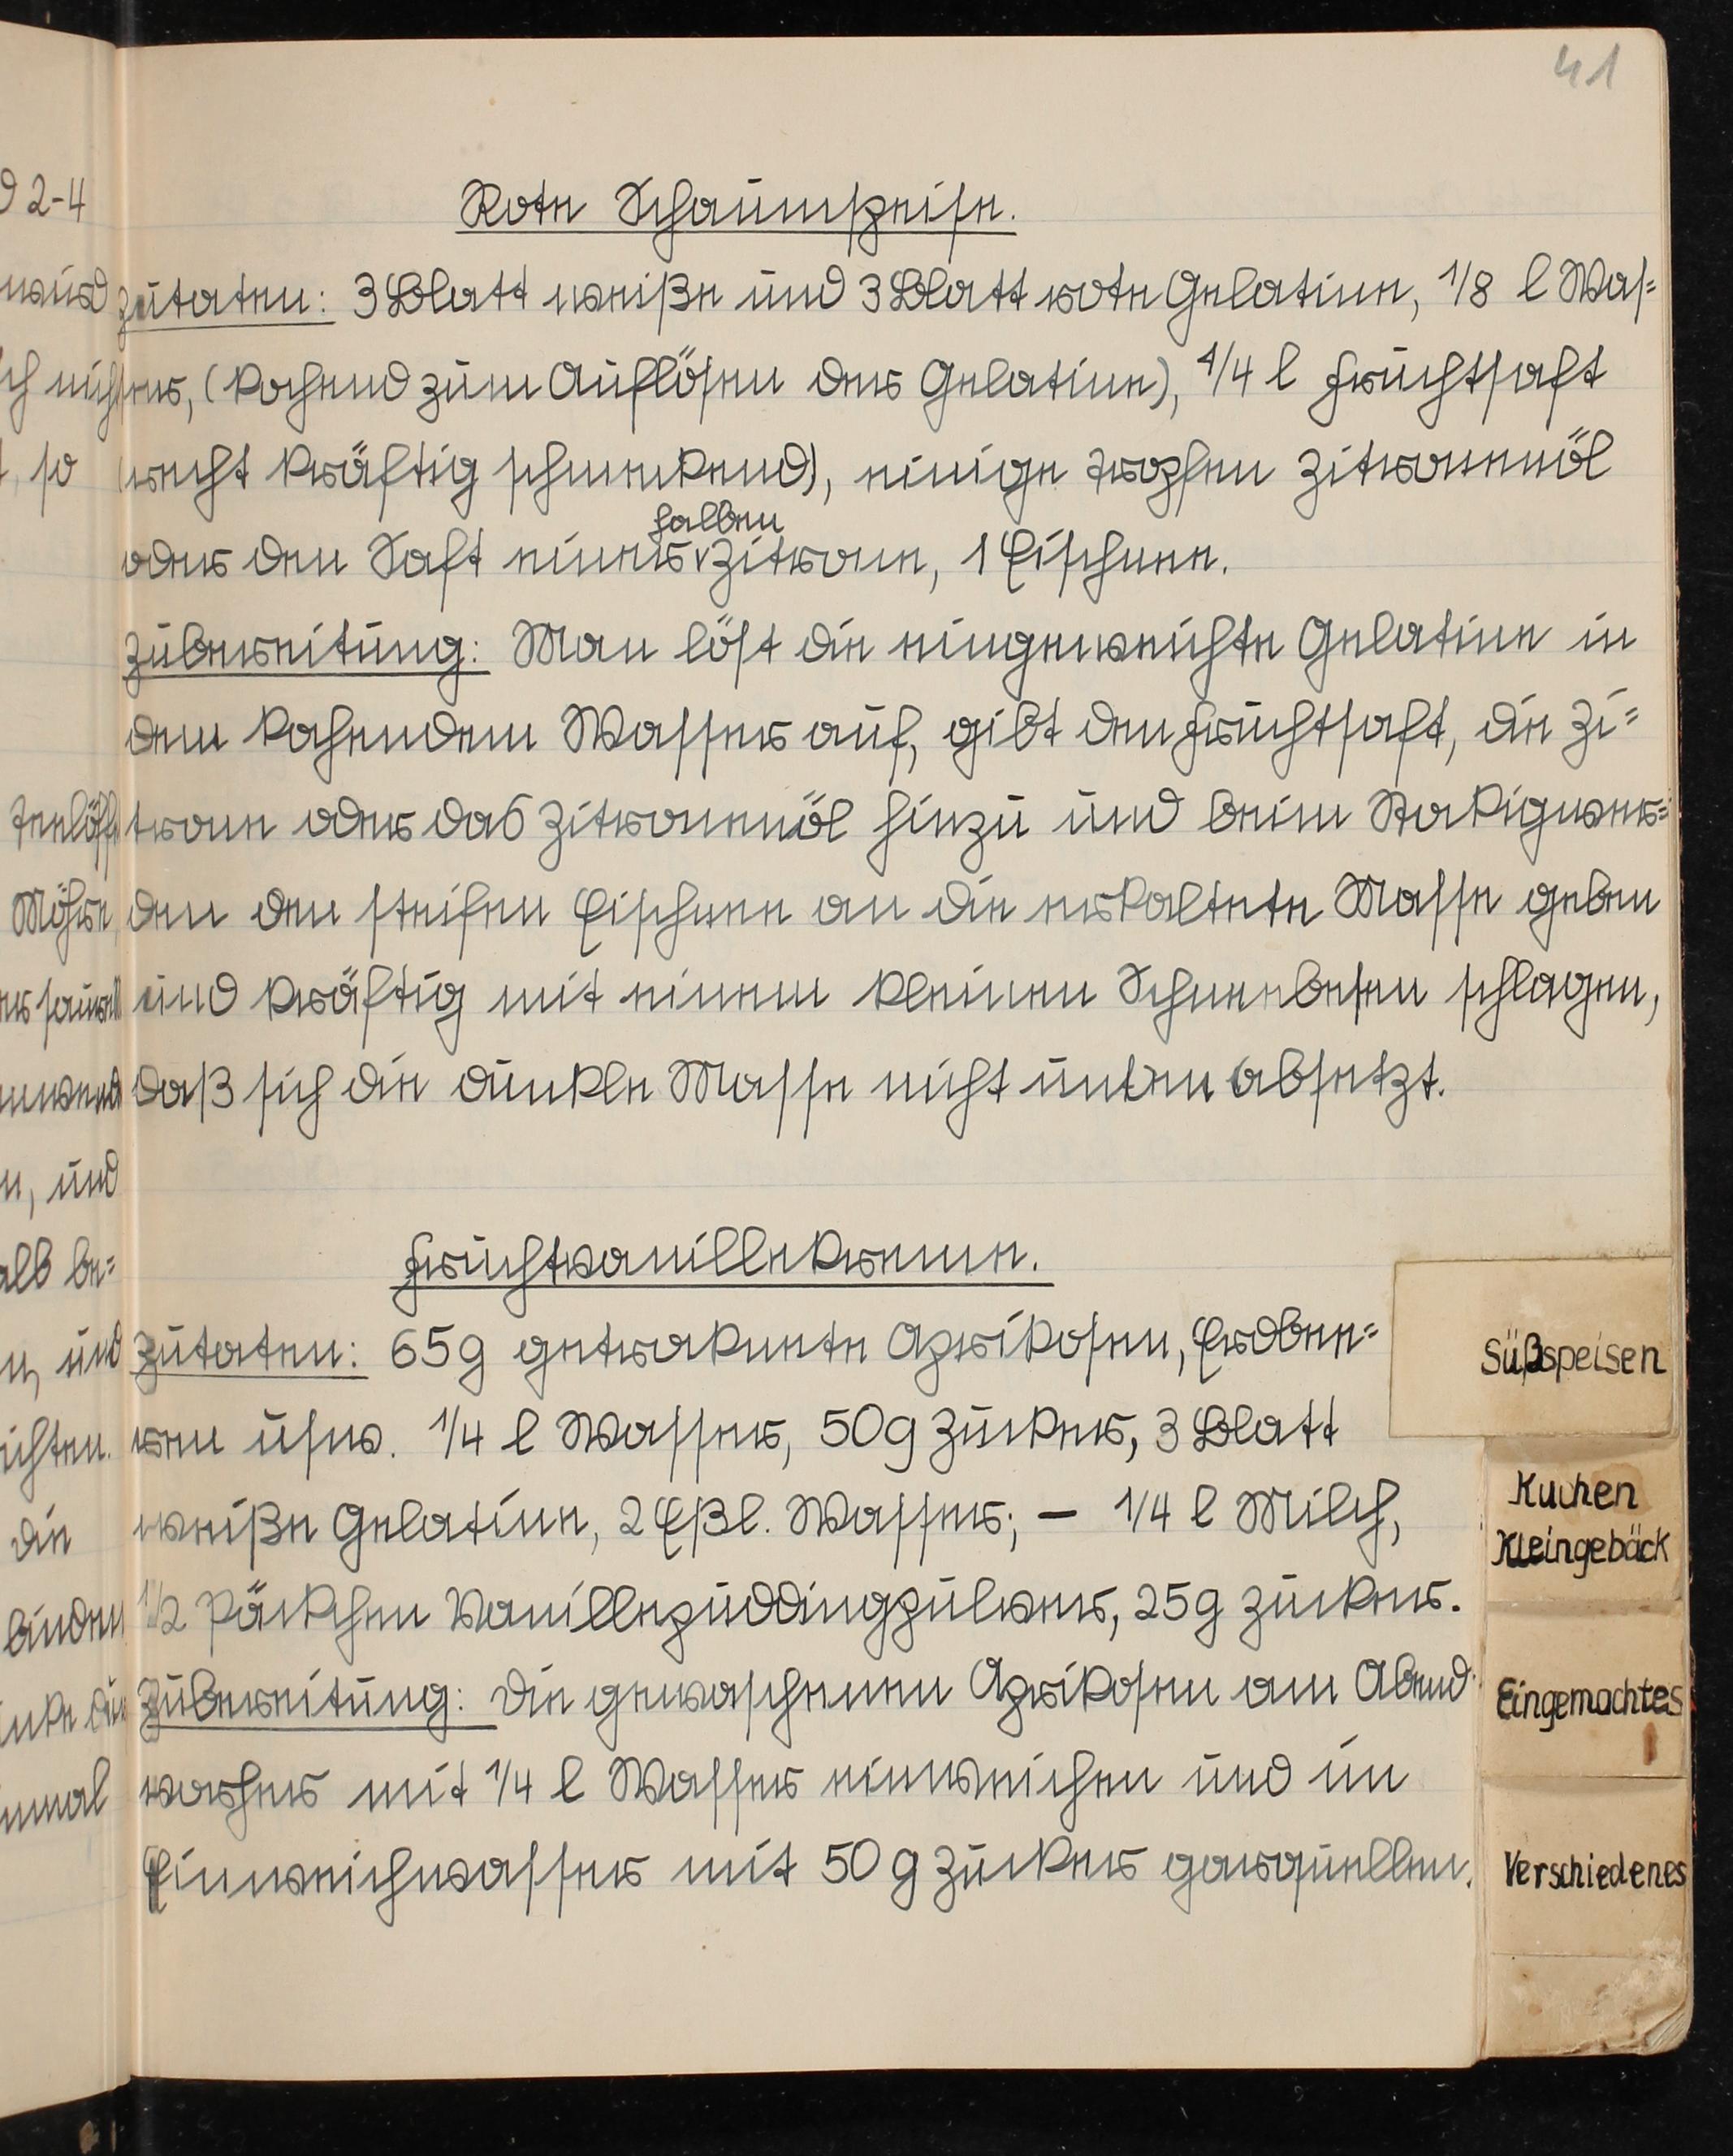 41
Rote Schaumspeise.
Zutaten: 3 Blatt weiße und 3 Blatt rote Gelatine, 1/8 l Was=
ser, (kochend zum Auflösen der Gelatine), 1/4 l Fruchtsaft
(recht kräftig schmeckend), einige Tropfen Zitronenöl
halben
oder den Saft einer Zitrone, 1 Eischnee.
Zubereitung: Man löst die eingeweichte Gelatine in
dem kochendem Wasser auf, gibt den Fruchtsaft, die Zi=
trone oder das Zitronenöl hinzu und beim Stockigwer=
den den steifen Eischnee an die erkaltete Masse geben
und kräftig mit einem kleinen Schneebesen schlagen,
daß sich die dunkle Masse nicht unten absetzt.
Fruchtvanillekreme.
Zutaten: 65g getrocknete Aprikosen, Erdbee=
ren usw. 1/4 l Wasser, 50g Zucker, 3 Blatt
weiße Gelatine, 2 Eßl. Wasser; – 1/4 l Milch,
1/2 Päckchen Vanillepuddingpulver, 25g Zucker.
Zubereitung: Die gewaschenen Aprikosen am Abend
vorher mit 1/4 l Wasser einweichen und im
Einweichwasser mit 50 g Zucker garquellen.
Süßspeisen
Kuchen
Kleingebäck
Eingemachtes
Verschiedenes
2-4
so
Möhre
, und
alb be=
, und
die
binden